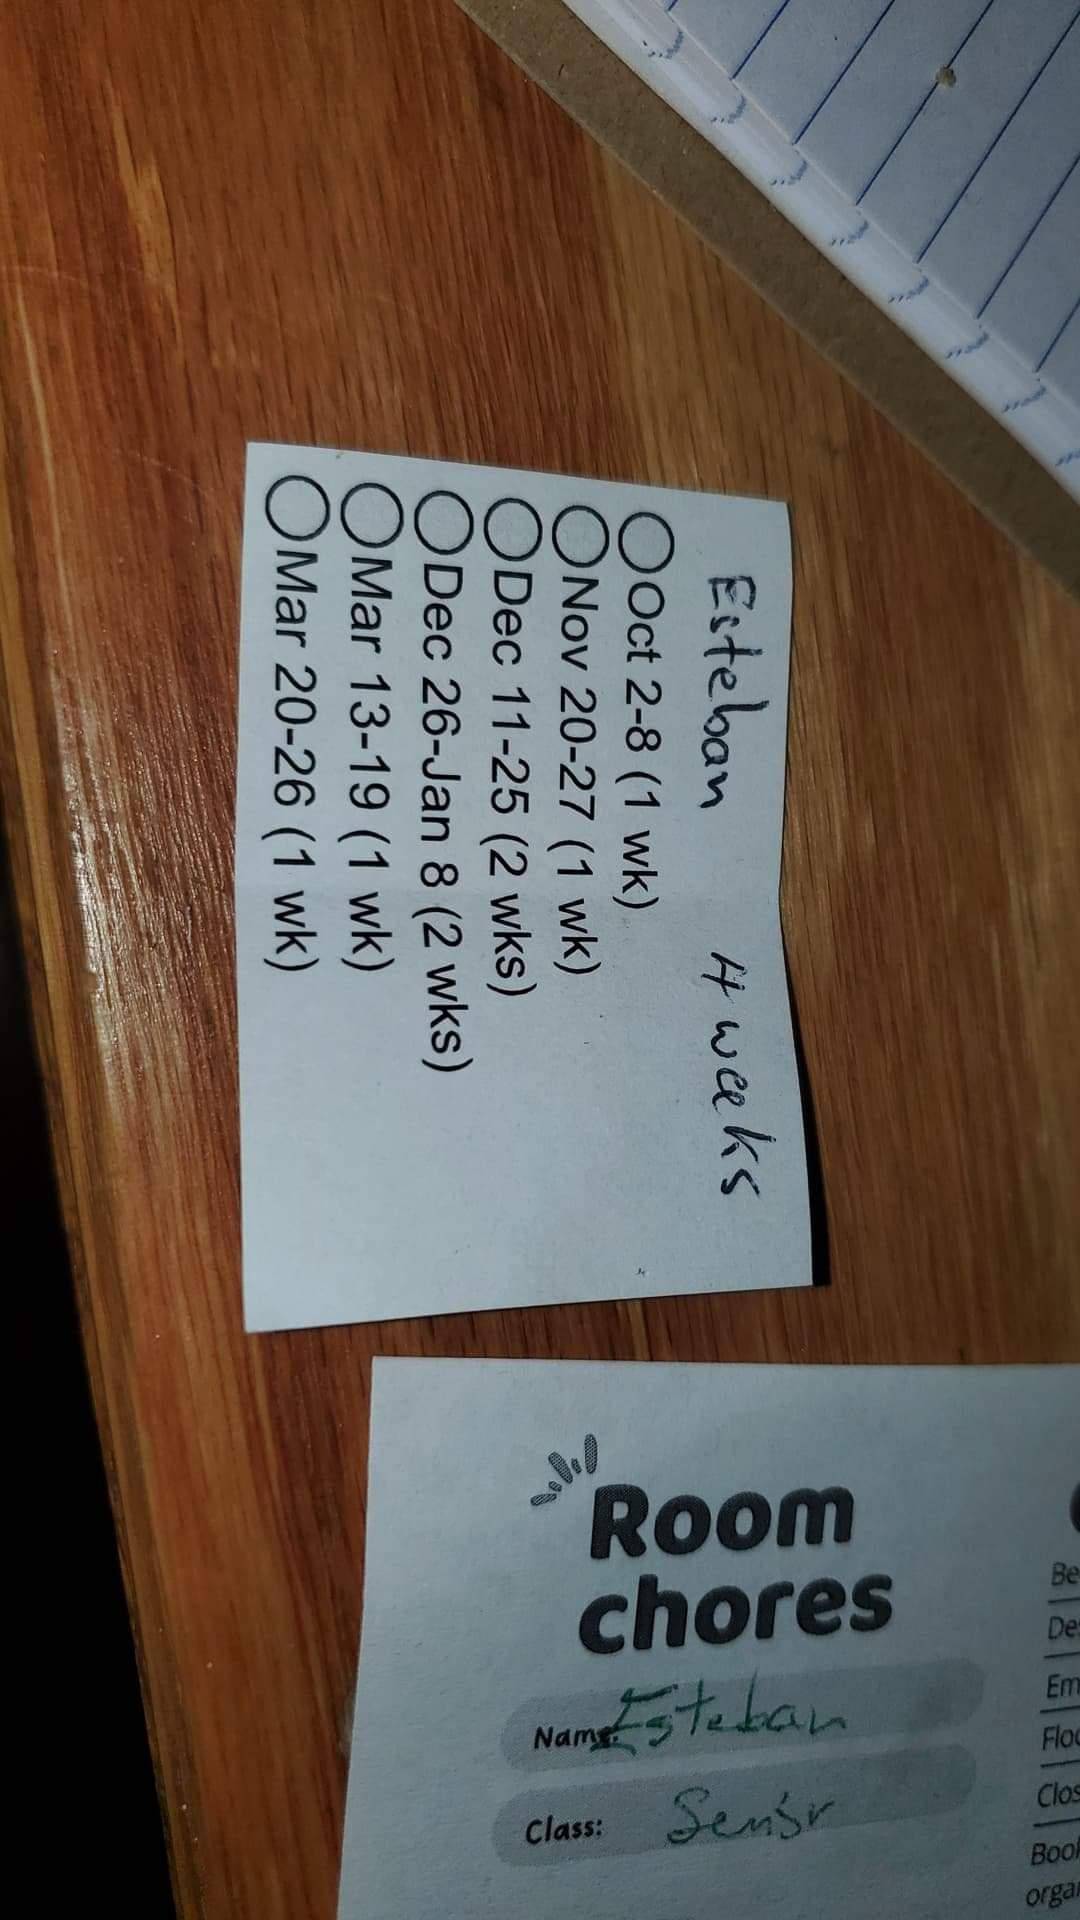 Esteban 4 weeks
Oct 2-8 (1 wk)
Nov 20-27 (1 wk)
Dec 11-25 (2 wks)
Dec 26-Jan 8 (2 wks)
Mar 13-19 (1 wk)
Mar 20-26 (1 wk)
Room
chores
Name: Esteban
Class: Senior
Be
De
Em
Floo
Clos
Book
organ